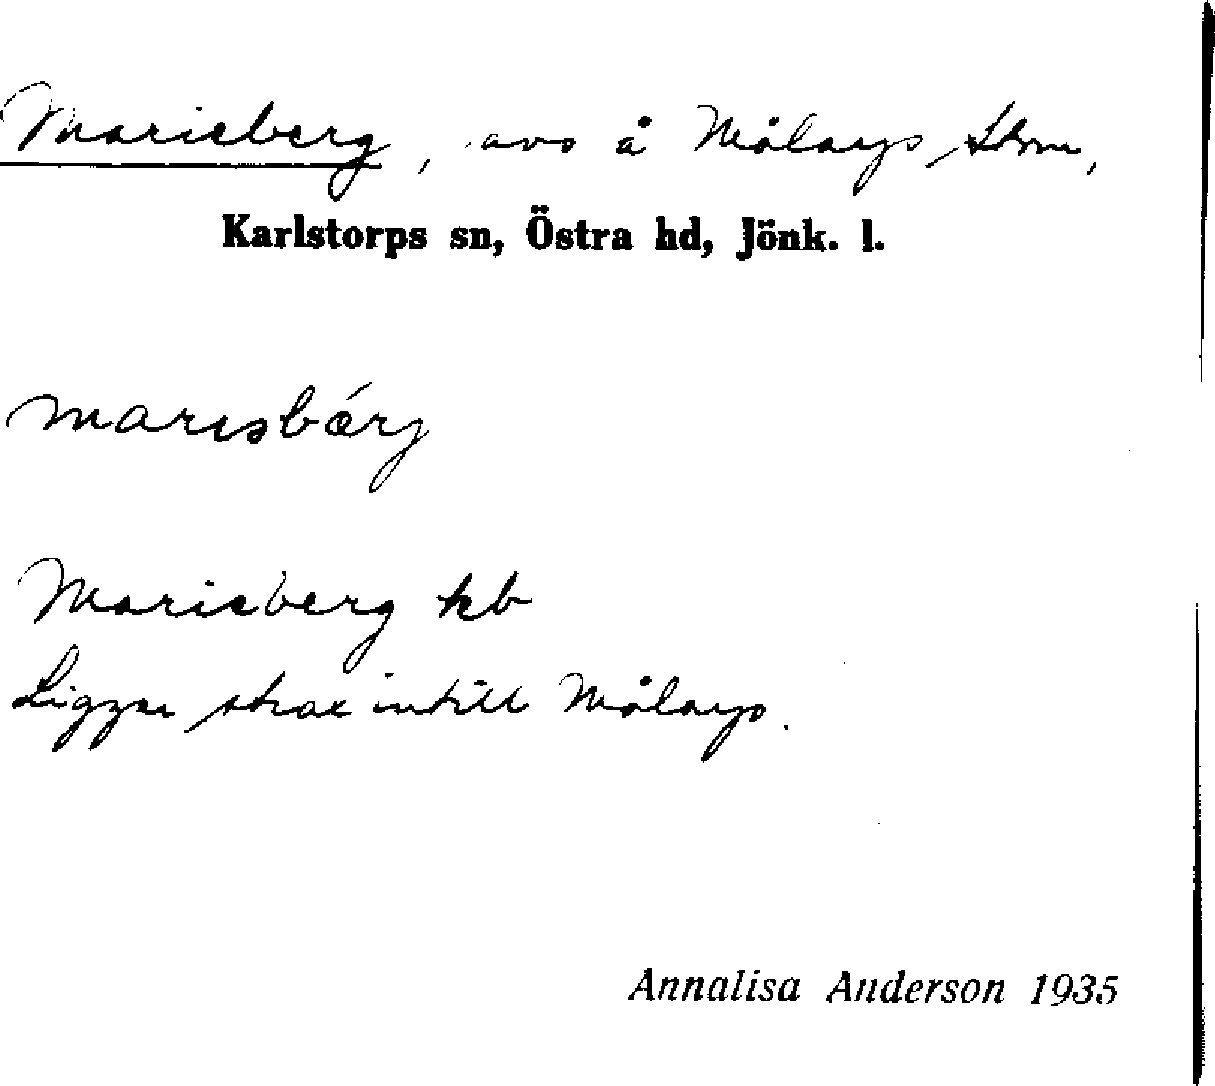 Marieberg, avs å Målarps Storm,
Karlstorps sn, Östra hd, Jönk. l.
marɩsbǽrj
Marieberg kb
Ligger strax intill Målarp.
Annalisa Anderson 1935